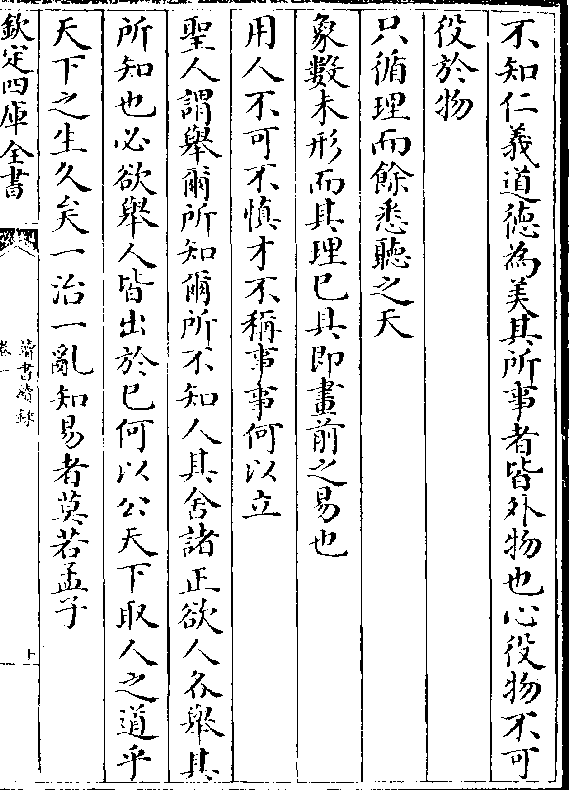 不知仁義道徳為美其所事者皆外物也心役物不可
役於物
只循理而餘悉聽之天
象數未形而其理已具即畫前之易也
用人不可不慎才不稱事事何以立
聖人謂舉爾所知爾所不知人其舍諸正欲人各舉其
所知也必欲舉人皆出於已何以公天下取人之道乎
天下之生久矣一治一亂知易者莫若孟子
欽定四庫全書
讀書續録
卷一